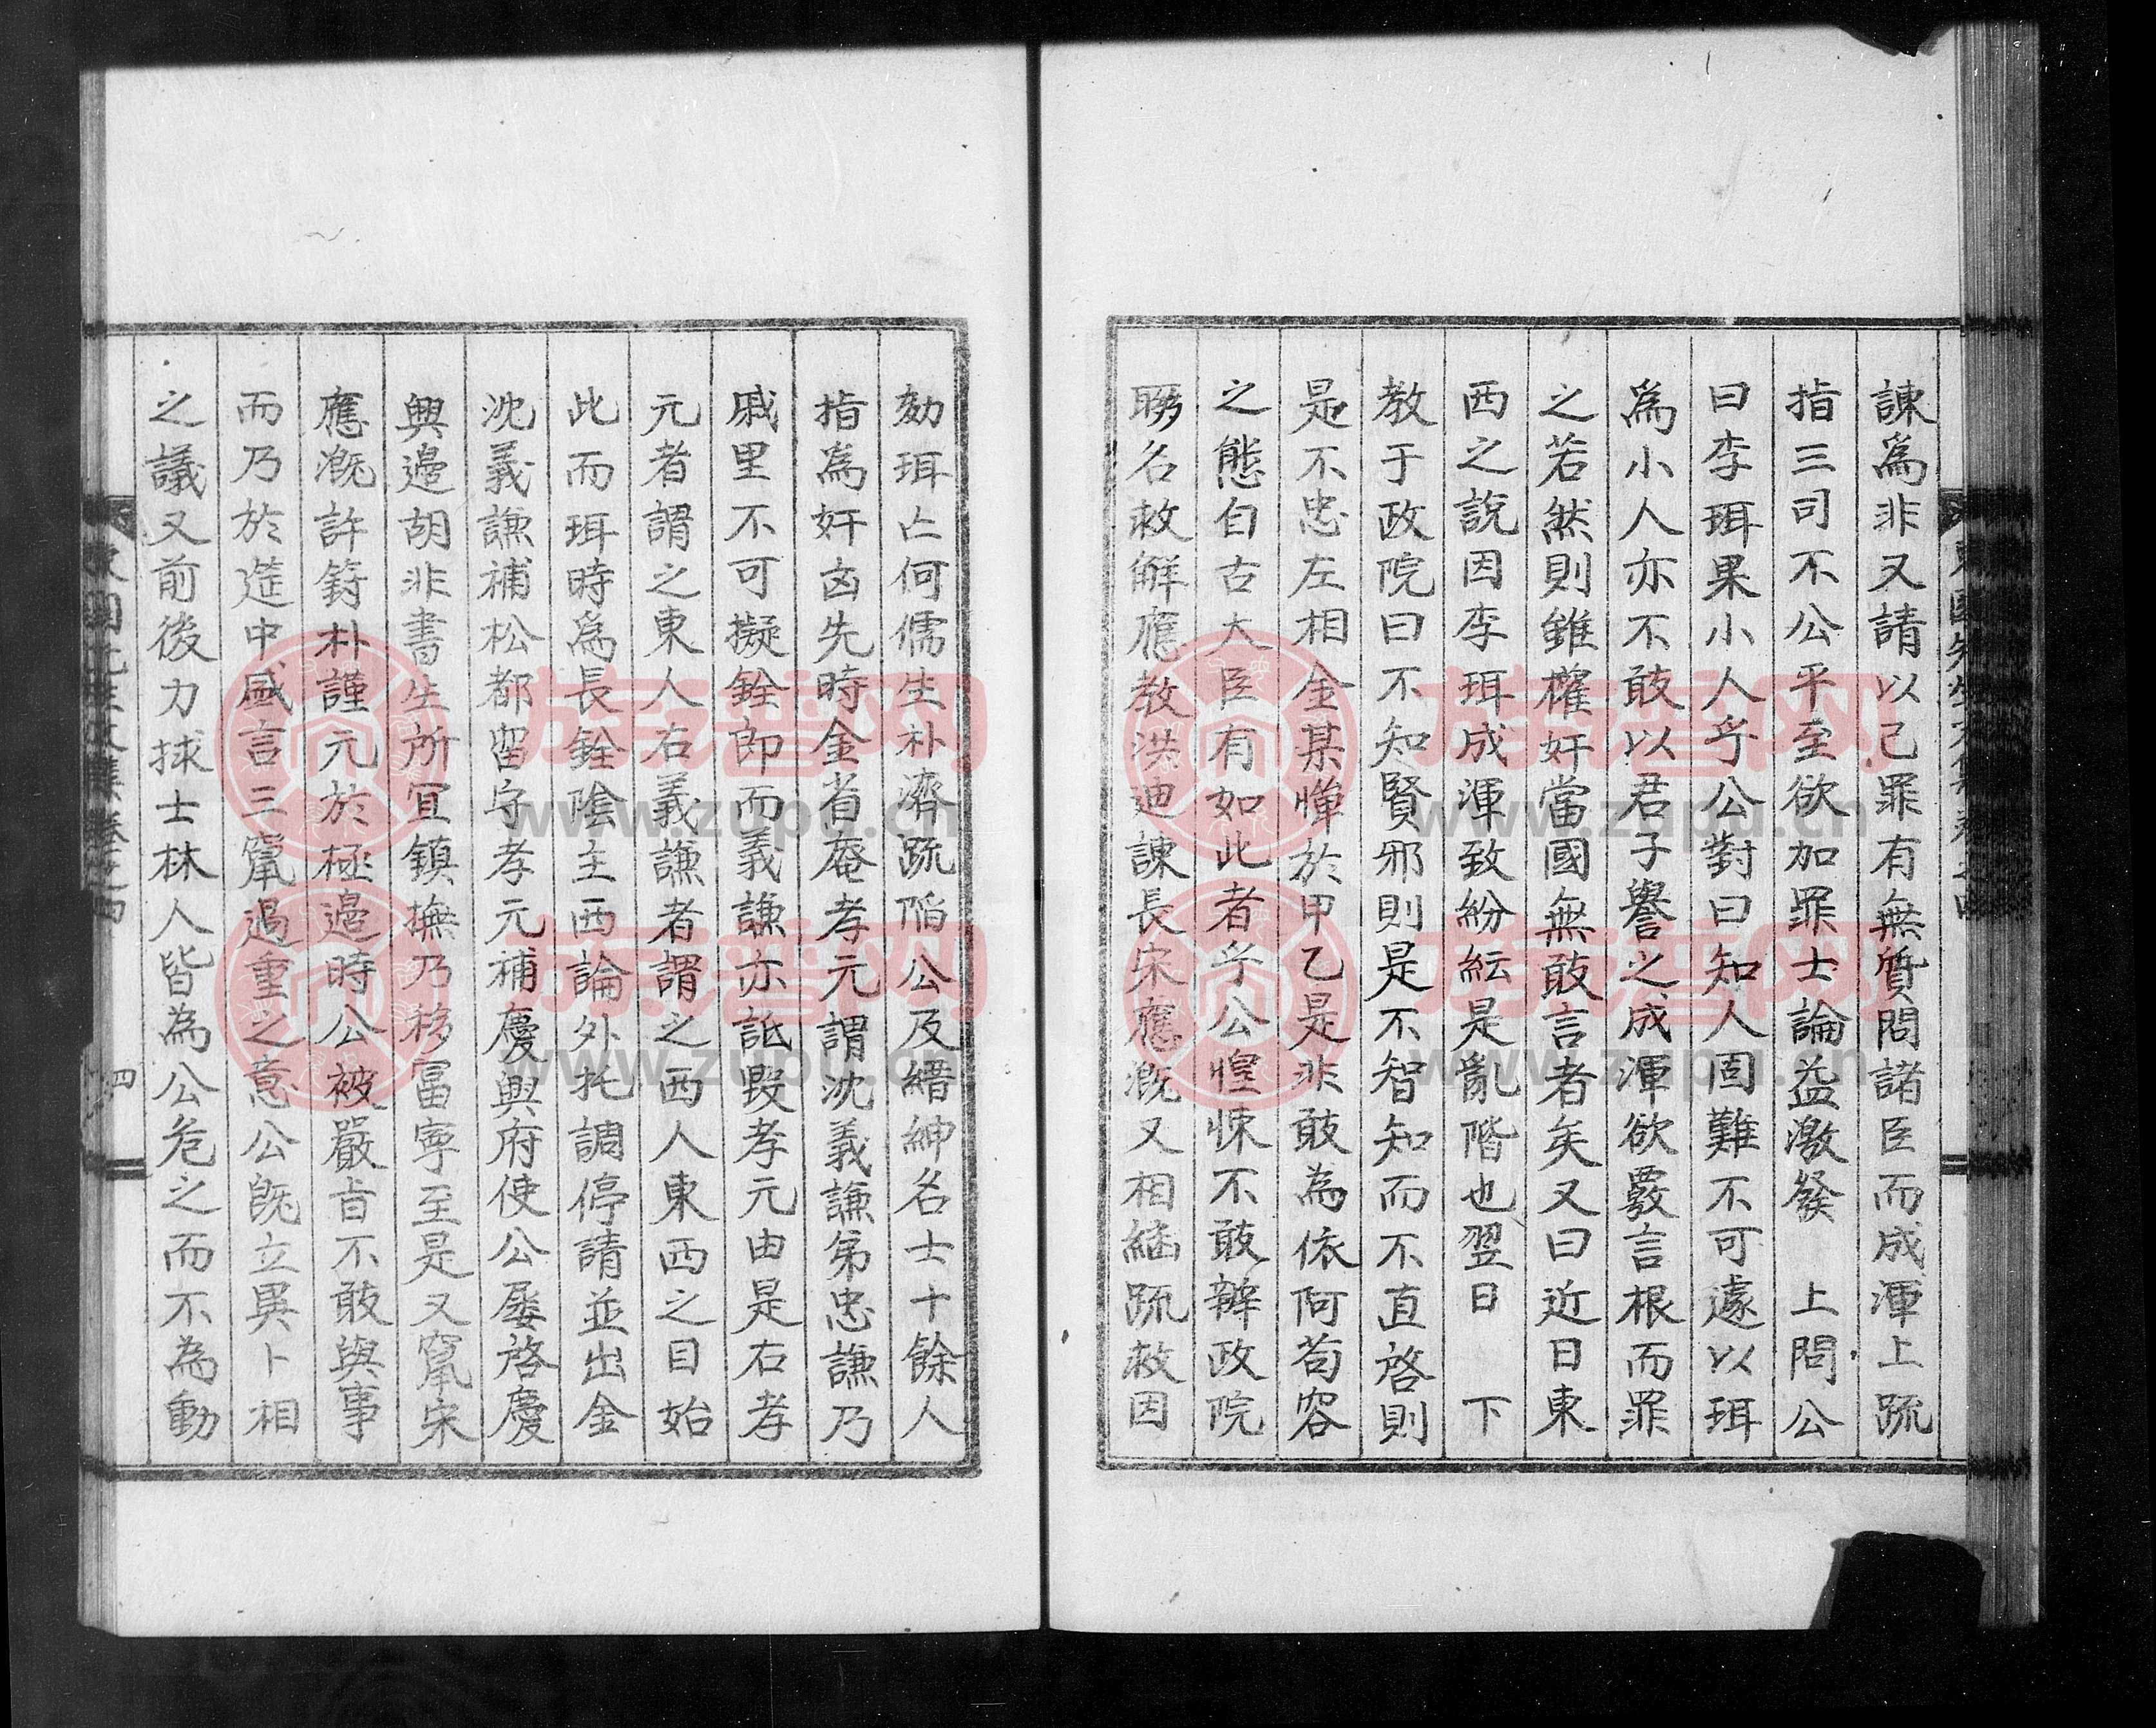 諫爲非又請以己罪有無質問諸臣而成渾上疏
指三司不公平至欲加罪士論益激發　上問公
曰李珥果小人乎公對曰知人固難不可遽以珥
爲小人亦不敢以君子譽之成渾欲覈言根而罪
之若然則雖權奸當國無敢言者矣又曰近日東
西之說因李珥成渾致紛紜是亂階也翌日　下
教于政院曰不知賢邪則是不智知而不直啓則
是不忠左相金某憚於甲乙是非敢為依阿苟容
之態自古大臣有如此者乎公惶悚不敢辨政院
聯名救解應教洪迪諫長宋應漑又相繼疏救因
劾珥亡何儒生朴濟疏陷公及縉紳名士十餘人
指爲奸凶先時金省菴孝元謂沈義謙弟忠謙乃
戚里不可擬銓郎而義謙亦詆毀孝元由是右孝
元者謂之東人右義謙者謂之西人東西之目始
此而珥時爲長銓陰主西論外托調停請並出金
沈義謙補松都留守孝元補慶興府使公屡啓慶
興邊胡非書生所宜鎮撫乃移富寧至是又竄宋
應漑許篈朴謹元於極邊時公被嚴旨不敢與事
而乃於莚中盛言三竄過重之意公旣立異卜相
之議又前後力捄士林人皆為公危之而不為動
東園先生文集卷之四
四
族譜网
www.zupu.cn
族譜网
www.zupu.cn
族譜网
www.zupu.cn
族譜网
www.zupu.cn